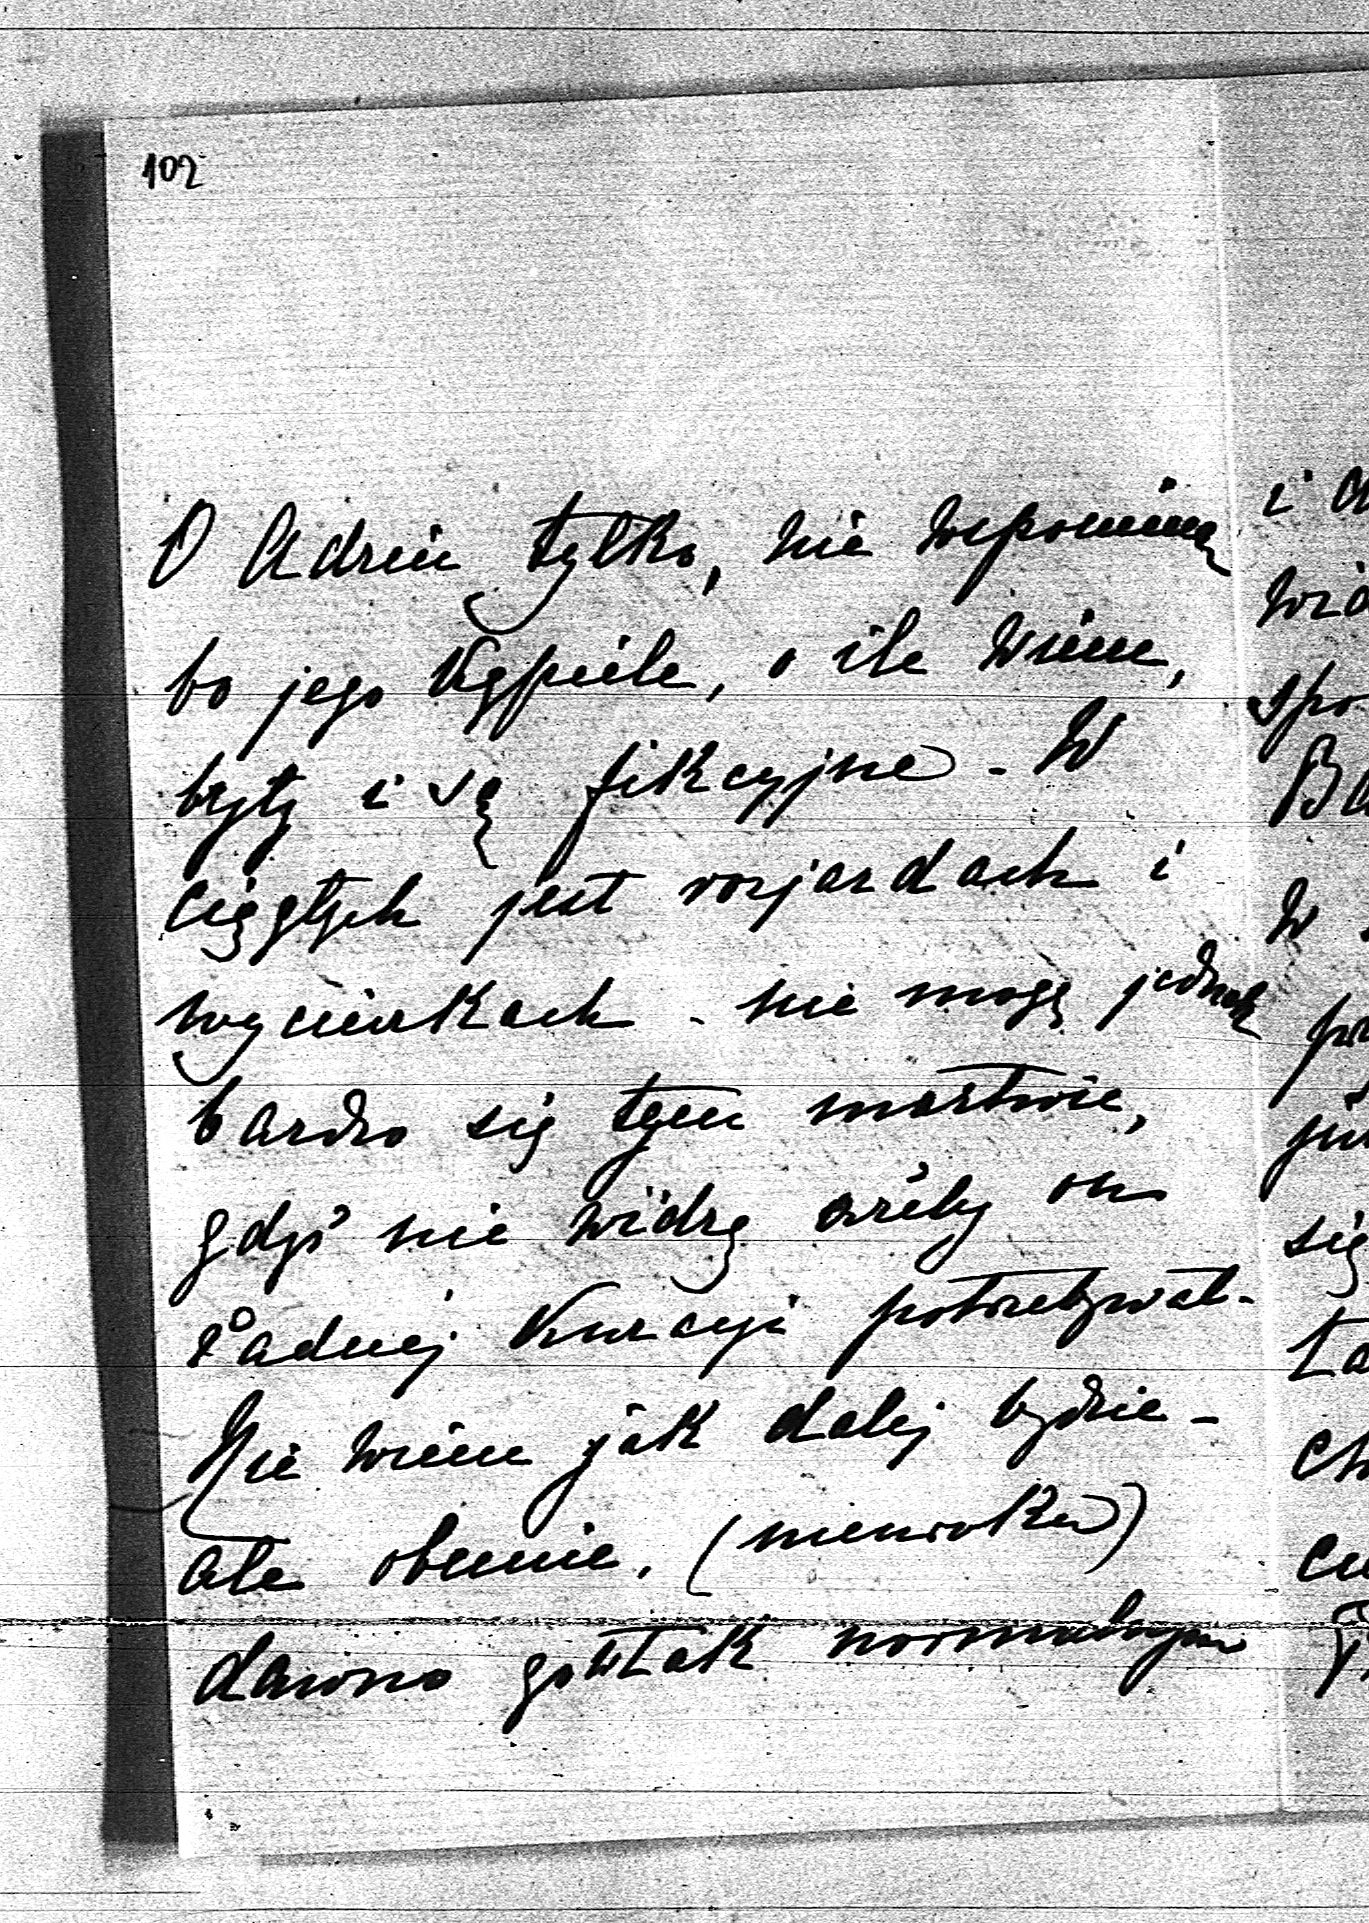 102
O Adziu tylko, nie wspominam
bo jego Kąpiele, o ile wiem,
były i są fikcyjne - W
ciągłych jest rozjazdach i
wycieczkach - nie mogę jednak
bardzo się tem martwić,
gdyż nie widzę ażeby on
żadnej Kuracyi potrzebywał -
Nie wiem jak dalej będzie -
ale obecnie, (nieuroku)
dawno go tak normalnym